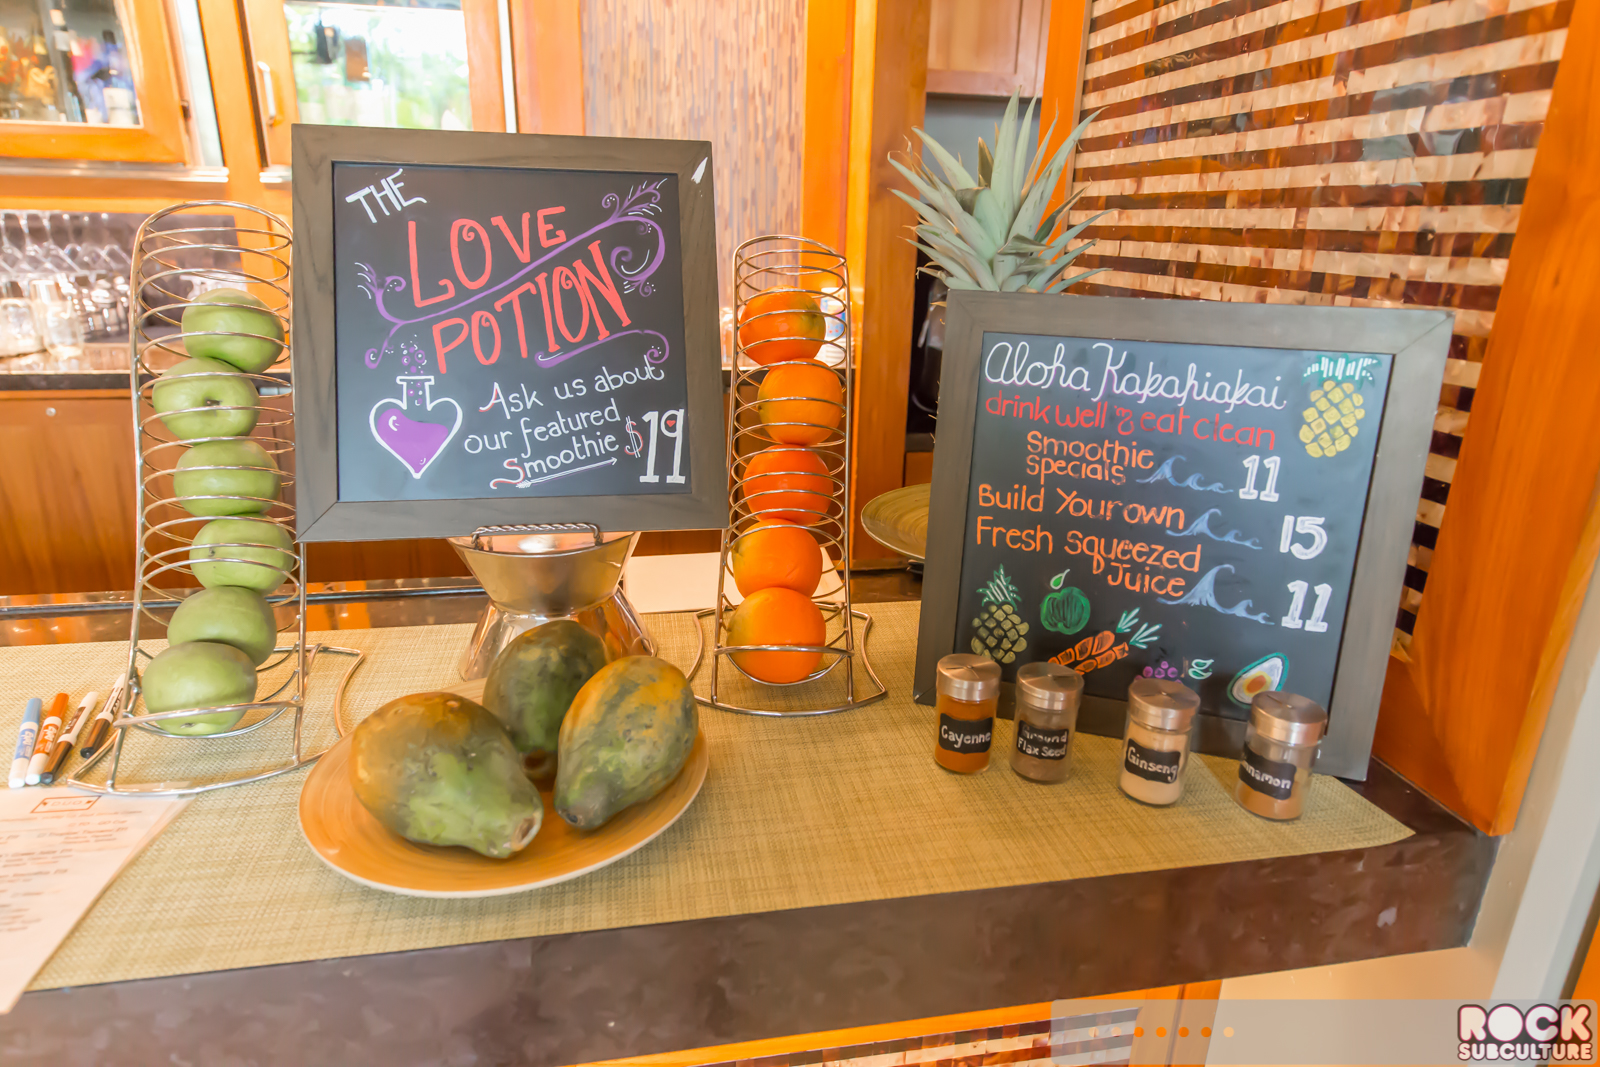 THE
LOVE
POTION
Ask us about
our featured
Smoothie $19
Aloha Kakahiakai
drink well & eat clean
Smoothie
Specials 11
Build Your own 15
Fresh Squeezed
Juice 11
Cayenne
Ground
Flax Seed
Ginseng
ROCK
SUBCULTURE